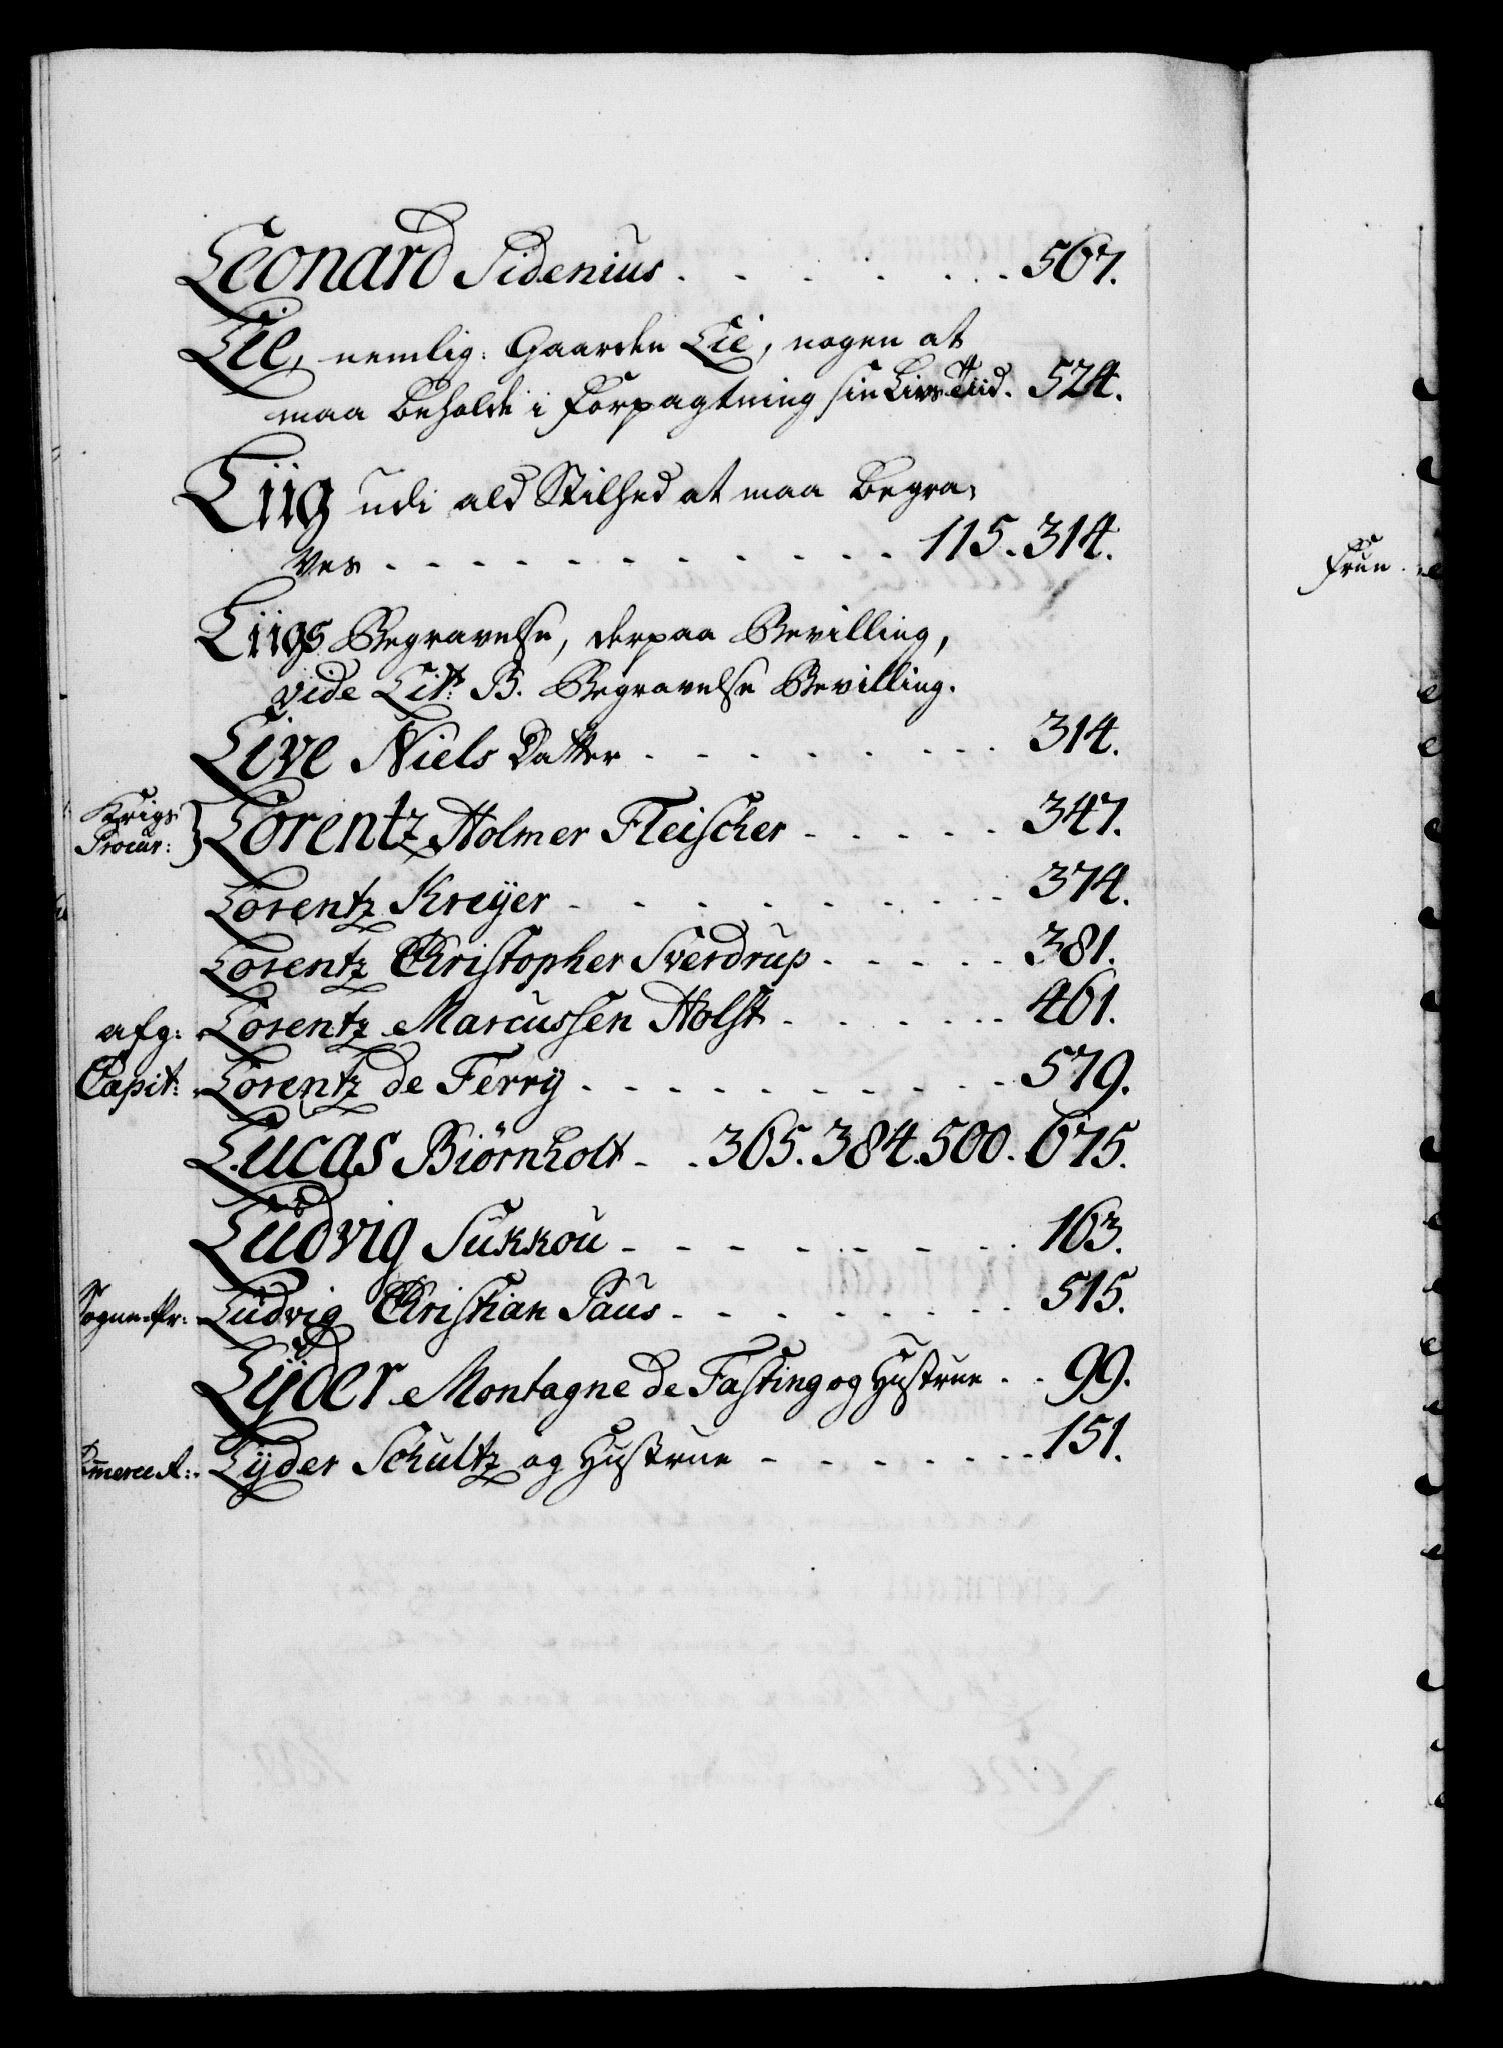 Leonard Sidenius. - - - - - - . 567.
Lie, nemlig: Gaarden Lie, nogen at
maa beholde i Forpagtning sin Livs Tiid. 524.
Liig udi ald Stilhed at maa begra-
ves - - - - - - - - - - 115. 314.
Liigs Begravelse, derpaa Bevilling,
vide Litr: B. Begravelse Bevilling.
Live Niels Datter - - - - - - - 314.
Krigs Procur: } Lorentz Holmer Fleischer - - - - - 347.
Lorentz Kreÿer - - - - - - - - - 374.
Lorentz Christopher Sverdrup - - - - - 381.
afg: Lorentz Marcussen Holst - - - - - - 461.
Capit: Lorentz de Ferrÿ - - - - - - - - - 579.
Lucas Biörnholt - - 365. 384. 500. 675.
Ludvig Sukkou - - - - - - - - 163.
Sogne-Pr: Ludvig Christian Paus - - - - - - - - 515.
Lÿder Montagne de Fasting og Hustrue - - 99.
Com̄erce R: Lÿder Schultz og Hustrue - - - - - - - 151.
Frue